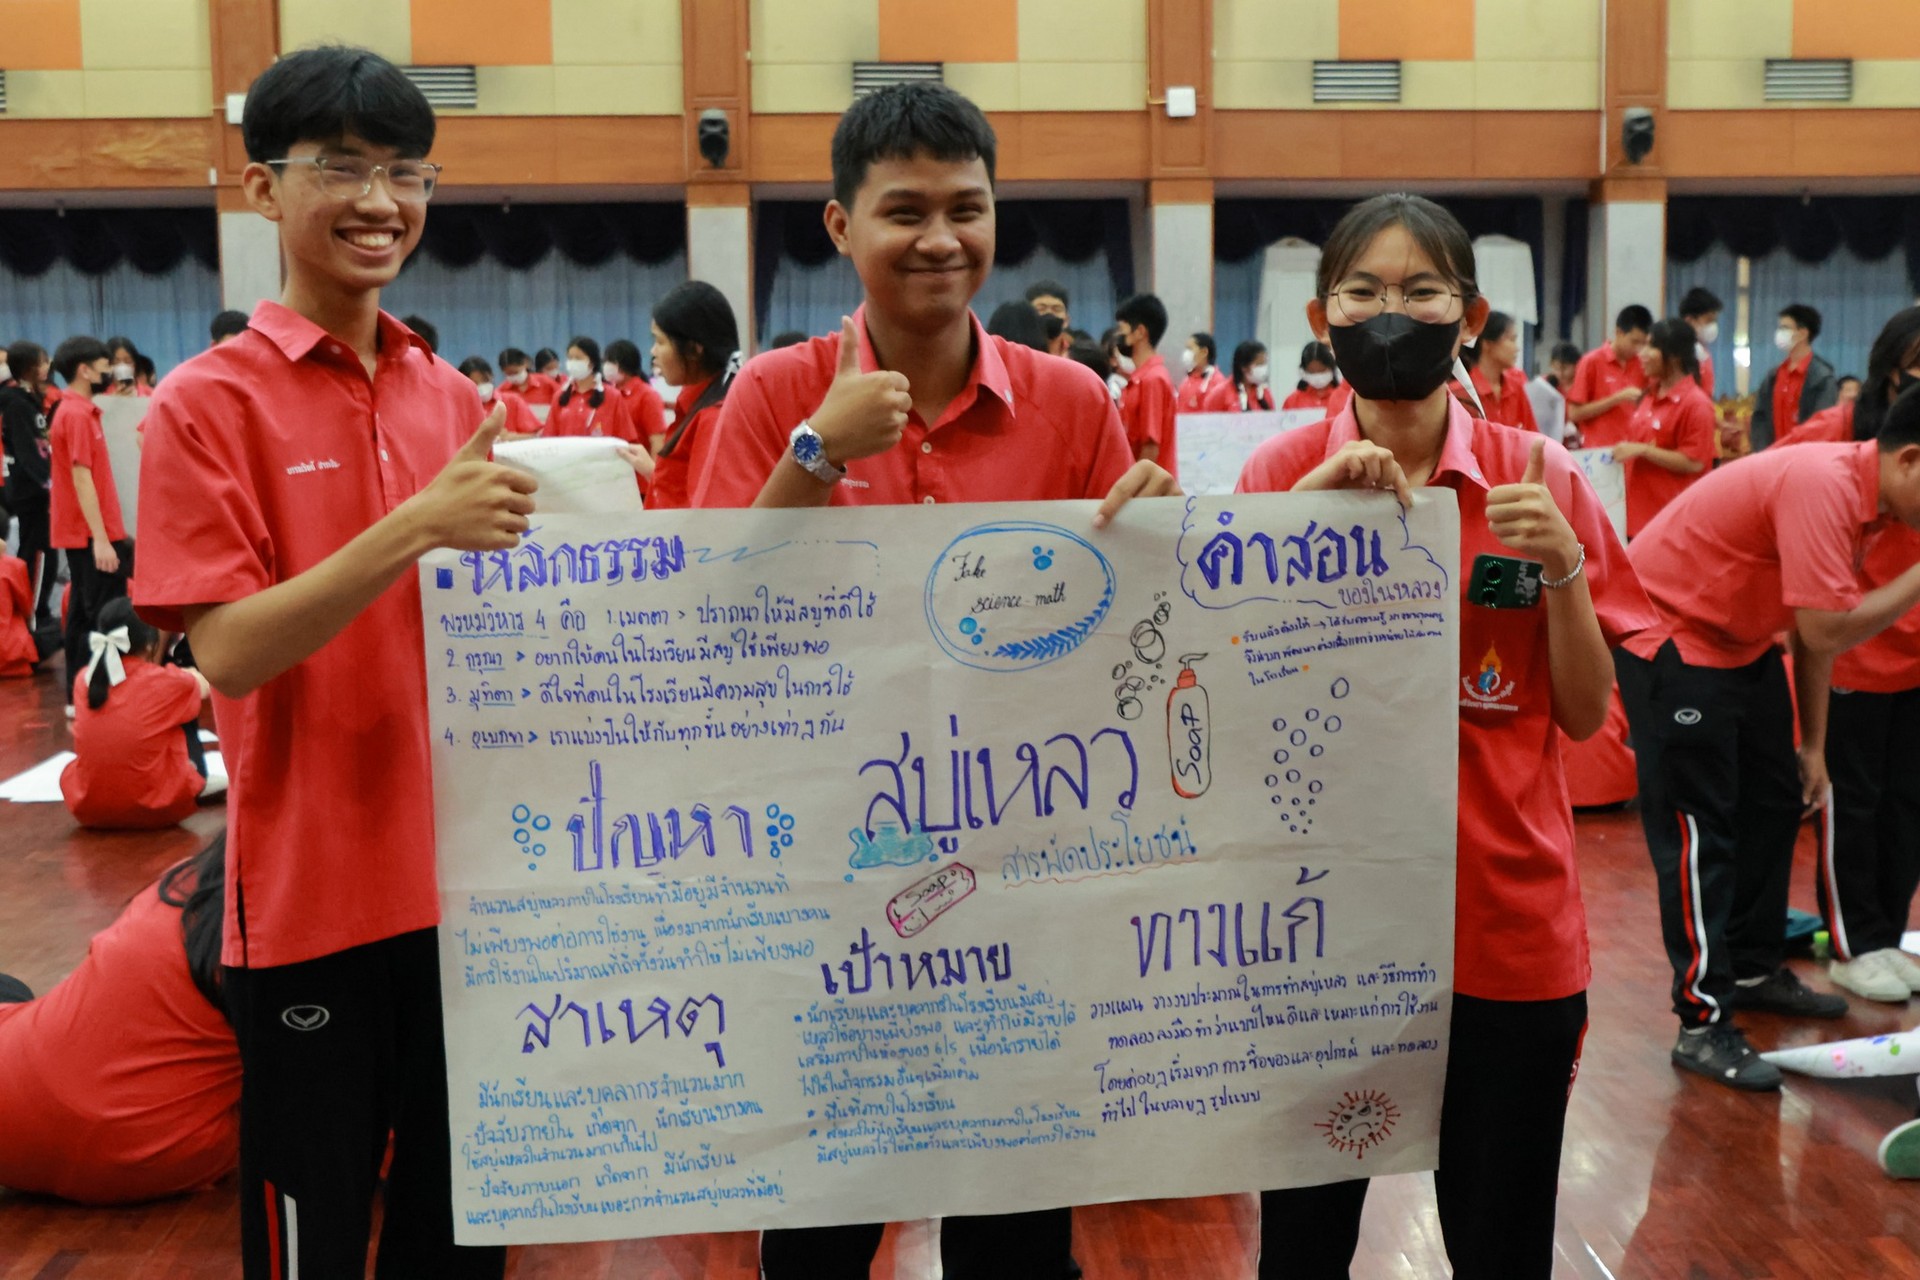 หลักธรรม
พรหมวิหาร 4 คือ 1.เมตตา > ปรารถนาให้มีสบู่ที่ดีใช้
2. กรุณา > อยากให้คนในโรงเรียนมีสบู่ใช้เพียงพอ
3. มุทิตา > ดีใจที่คนในโรงเรียนมีความสุขในการใช้
4. อุเบกขา > เราแบ่งปันให้กับทุกชั้นอย่างเท่าๆกัน
Fake
science-math
คำสอน
ของในหลวง
สบู่เหลว
สารพัดประโยชน์
SOAP
Soap
ปัญหา
จำนวนสบู่เหลวภายในโรงเรียนที่มีอยู่มีจำนวนที่
ไม่เพียงพอต่อการใช้งาน เนื่องมาจากนักเรียนบางคน
มีการใช้งานในปริมาณที่ถี่ทั้งวันทำให้ไม่เพียงพอ
สาเหตุ
มีนักเรียนและบุคลากรจำนวนมาก
-ปัจจัยภายใน เกิดจาก นักเรียนบางคน
ใช้สบู่เหลวในจำนวนมากเกินไป
-ปัจจัยภายนอก เกิดจาก มีนักเรียน
และบุคลากรในโรงเรียนเยอะกว่าจำนวนสบู่เหลวที่มีอยู่
เป้าหมาย
• นักเรียนและบุคลากรในโรงเรียนมีสบู่
เหลวใช้อย่างเพียงพอ และทำให้มีรายได้
เสริมภายในห้องของ 6/5 เพื่อนำรายได้
ไปใช้ในกิจกรรมอื่นๆเพิ่มเติม
• พื้นที่ภายในโรงเรียน
• ส่งผลให้นักเรียนและบุคลากรภายในโรงเรียน
มีสบู่เหลวไว้ใช้ติดตัวและเพียงพอต่อการใช้งาน
ทางแก้
วางแผน วางงบประมาณในการทำสบู่เหลว และวิธีการทำ
ทดลองลงมือทำว่าแบบไหนดีและเหมาะแก่การใช้งาน
โดยค่อยๆเริ่มจาก การซื้อของและอุปกรณ์ และทดลอง
ทำไปในหลายๆรูปแบบ